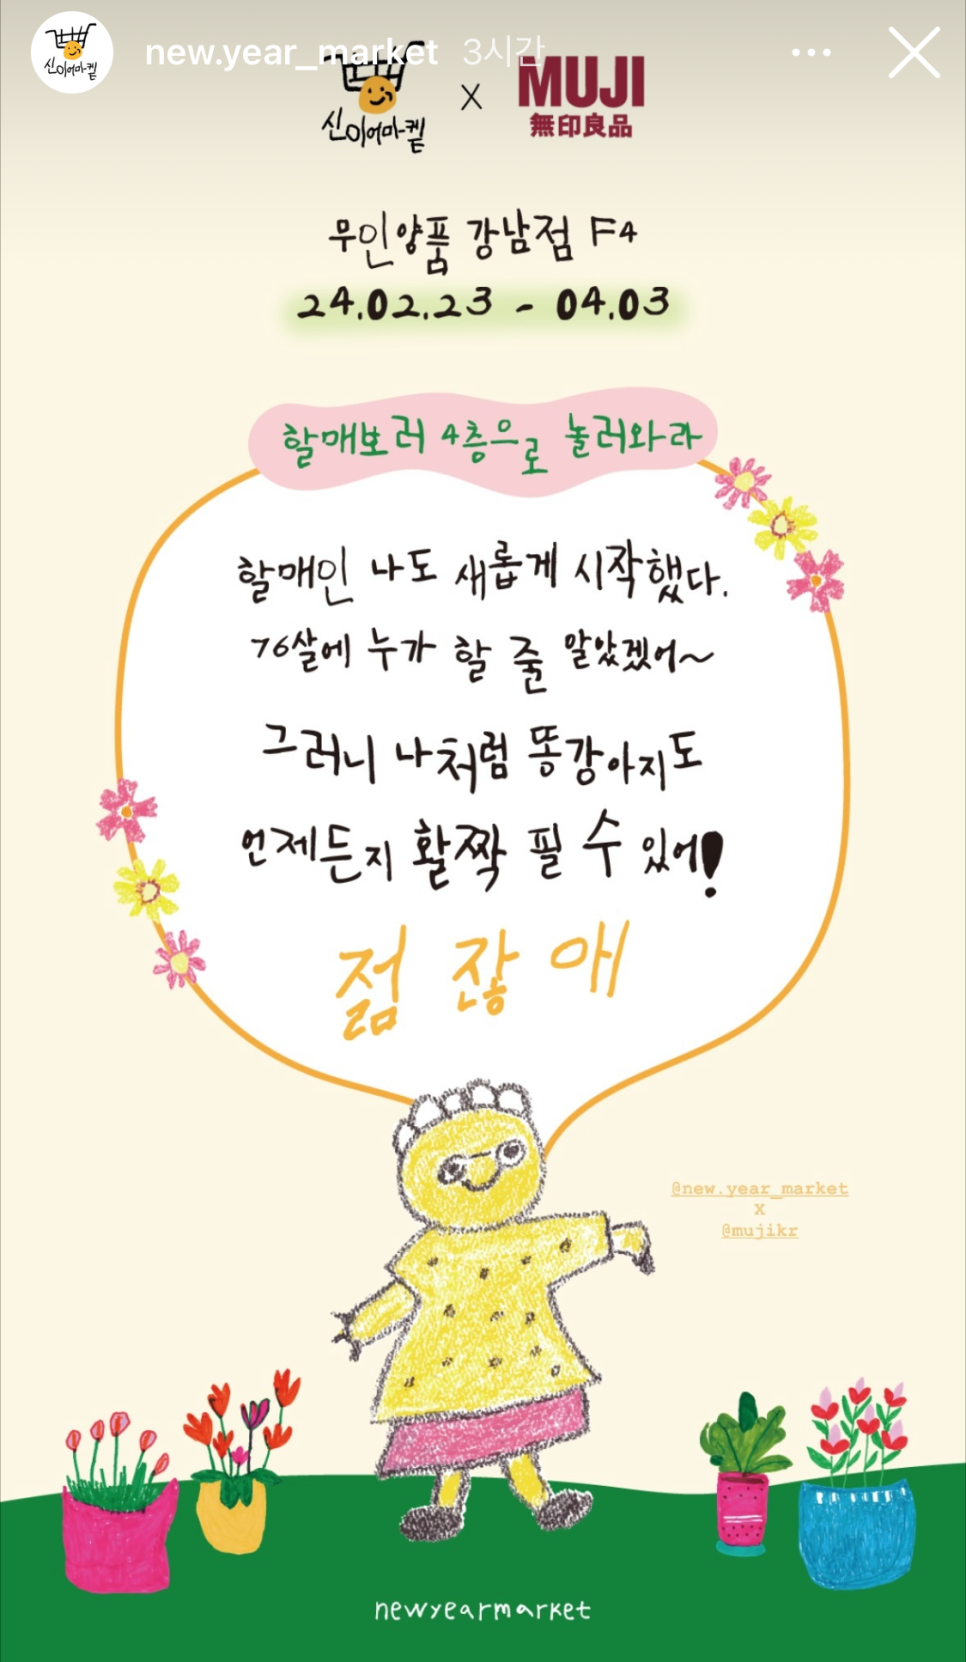 new.year_market 3시간
신이어마켙 X MUJI
無印良品
무인양품 강남점 F4
24.02.23 - 04.03
할매보러 4층으로 놀러와라
할매인 나도 새롭게 시작했다.
76살에 누가 할 줄 알았겠어~
그러니 나처럼 똥강아지도
언제든지 활짝 필 수 있어!
젊잖애
@new.year_market
X
@mujikr
newyearmarket